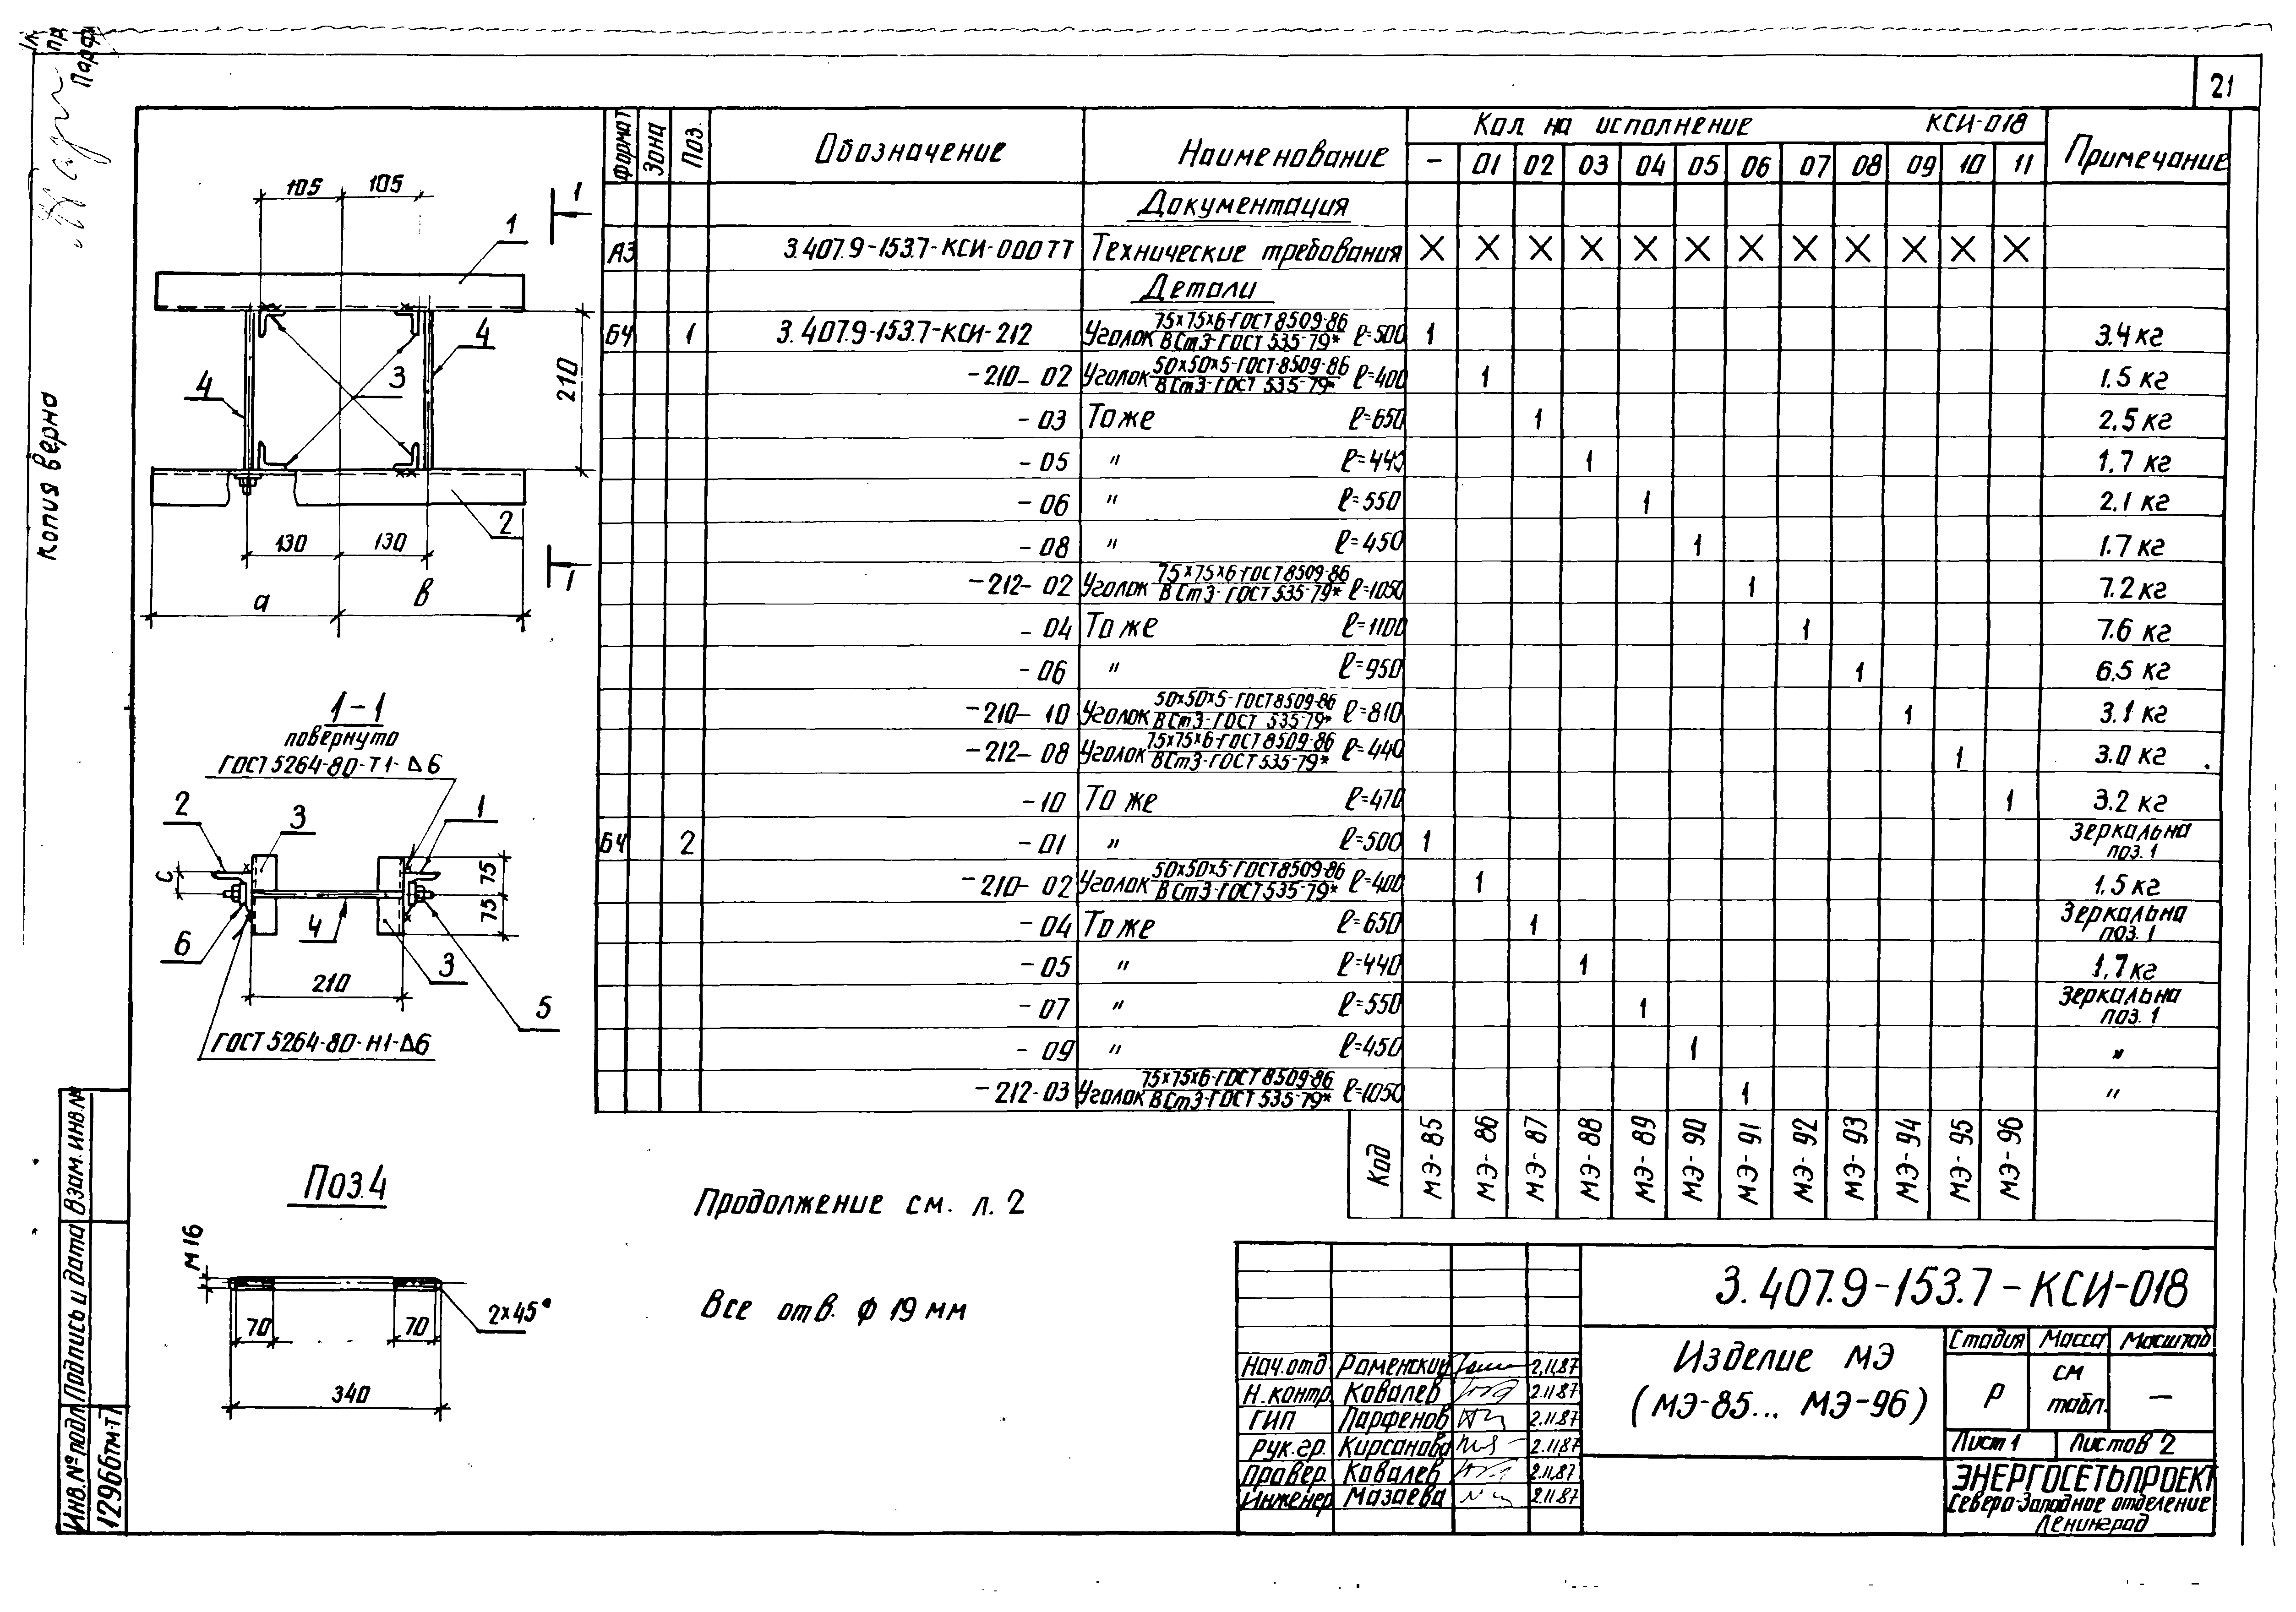 21
Копия верно
105 105
1
1
4
3
4
210
2
130 130
1
а в
1-1
повернуто
ГОСТ 5264-80-Т1-Δ6
2 3 1
с
75
75
6 4 3
210
5
ГОСТ 5264-80-Н1-Δ6
Поз.4
М16
70 70
2×45°
340
Формат Зона Поз. Обозначение Наименование Кол. на исполнение КСИ-018 Примечание
- 01 02 03 04 05 06 07 08 09 10 11
Документация
А3 3.407.9-153.7-КСИ-000ТТ Технические требования X X X X X X X X X X X X
Детали
БЧ 1 3.407.9-153.7-КСИ-212 Уголок 75×75×6-ГОСТ 8509-86 / ВСт3-ГОСТ 535-79* ℓ=500 1 3.4 кг
-210-02 Уголок 50×50×5-ГОСТ 8509-86 / ВСт3-ГОСТ 535-79* ℓ=400 1 1.5 кг
-03 То же ℓ=650 1 2.5 кг
-05 " ℓ=440 1 1.7 кг
-06 " ℓ=550 1 2.1 кг
-08 " ℓ=450 1 1.7 кг
-212-02 Уголок 75×75×6-ГОСТ 8509-86 / ВСт3-ГОСТ 535-79* ℓ=1050 1 7.2 кг
-04 То же ℓ=1100 1 7.6 кг
-06 " ℓ=950 1 6.5 кг
-210-10 Уголок 50×50×5-ГОСТ 8509-86 / ВСт3-ГОСТ 535-79* ℓ=810 1 3.1 кг
-212-08 Уголок 75×75×6-ГОСТ 8509-86 / ВСт3-ГОСТ 535-79* ℓ=440 1 3.0 кг
-10 То же ℓ=470 1 3.2 кг
БЧ 2 -01 " ℓ=500 1 Зеркальна поз. 1
-210-02 Уголок 50×50×5-ГОСТ 8509-86 / ВСт3-ГОСТ 535-79* ℓ=400 1 1.5 кг
-04 То же ℓ=650 1 Зеркальна поз. 1
-05 " ℓ=440 1 1,7 кг
-07 " ℓ=550 1 Зеркальна поз. 1
-09 " ℓ=450 1 "
-212-03 Уголок 75×75×6-ГОСТ 8509-86 / ВСт3-ГОСТ 535-79* ℓ=1050 1 "
Код МЭ-85 МЭ-86 МЭ-87 МЭ-88 МЭ-89 МЭ-90 МЭ-91 МЭ-92 МЭ-93 МЭ-94 МЭ-95 МЭ-96
Продолжение см. л. 2
Все отв. ф 19 мм
3.407.9-153.7-КСИ-018
Изделие МЭ
(МЭ-85... МЭ-96)
Стадия Масса Масштаб
Р см табл. —
Лист 1 Листов 2
ЭНЕРГОСЕТЬПРОЕКТ
Северо-Западное отделение
Ленинград
Нач.отд Роменский 2.11.87
Н.контр. Ковалев 2.11.87
ГИП Парфенов 2.11.87
Рук.гр. Кирсанова 2.11.87
Провер. Ковалев 2.11.87
Инженер Мазаева 2.11.87
Взам.инв.№
Подпись и дата
Инв.№ подл
12966тм-т7